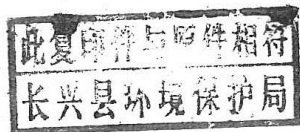 此复印件与原件相符
长兴县环境保护局